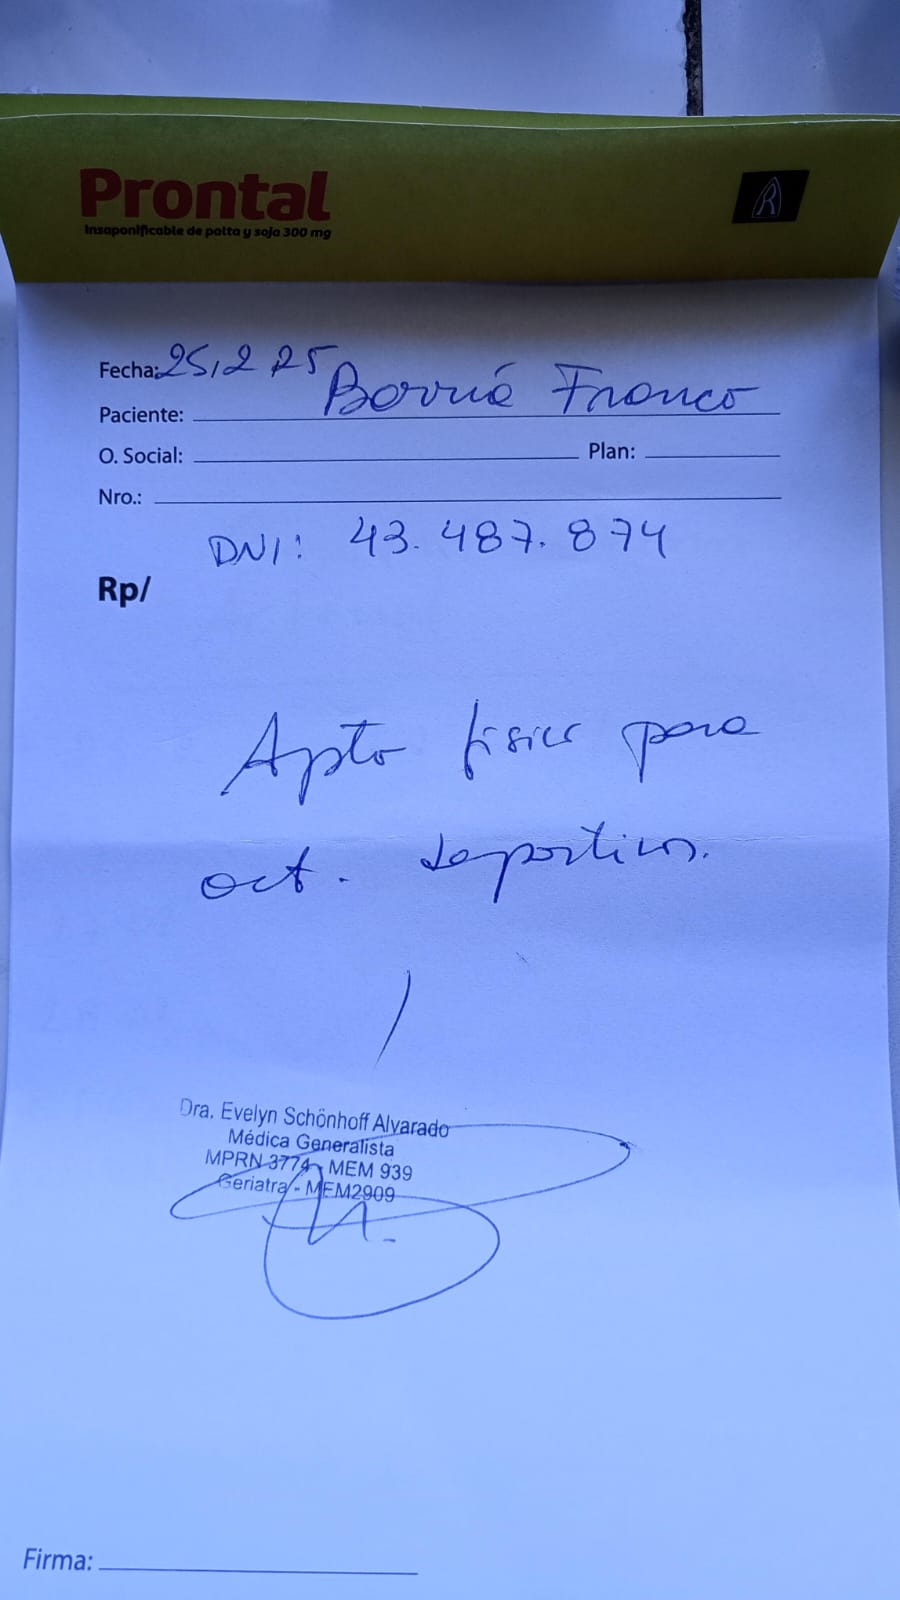 Prontal
Insaponificable de palta y soja 300 mg
R
Fecha: 25,2 25
Paciente: Borrué Franco
O. Social: Plan:
Nro.:
DNI: 43.487.874
Rp/
Apto físico para
act. deportivas.
Dra. Evelyn Schönhoff Alvarado
Médica Generalista
MPRN 3774 - MEM 939
Geriatra - MEM2909
Firma: